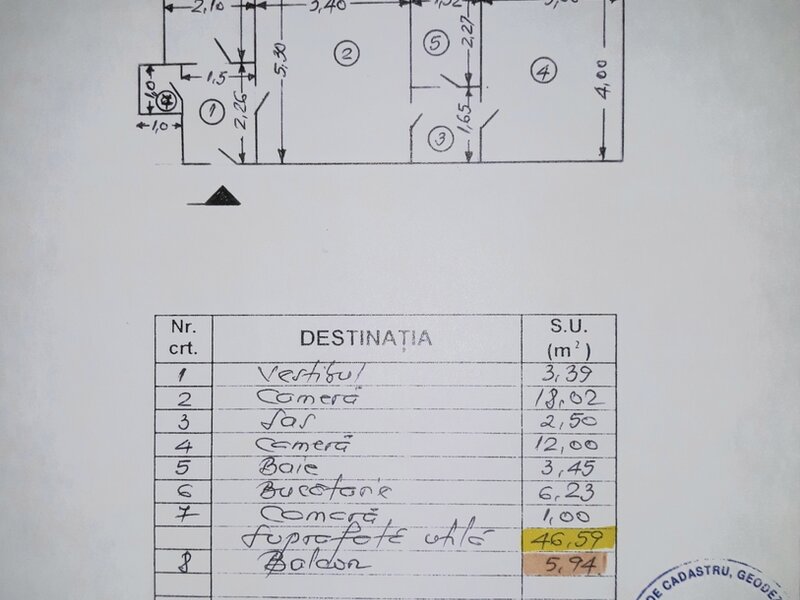 2,10 3,40
5,30
2,27
4,00
1,5
1,0
2,26
1,65
1,0
1
2
3
4
5
Nr. crt. DESTINAȚIA S.U. (m²)
1 Vestibul 3,39
2 Cameră 18,02
3 Sas 2,50
4 Cameră 12,00
5 Baie 3,45
6 Bucotarie 6,23
7 Camară 1,00
Suprafață utilă 46,59
8 Balcon 5,94
DE CADASTRU, GEODEZ